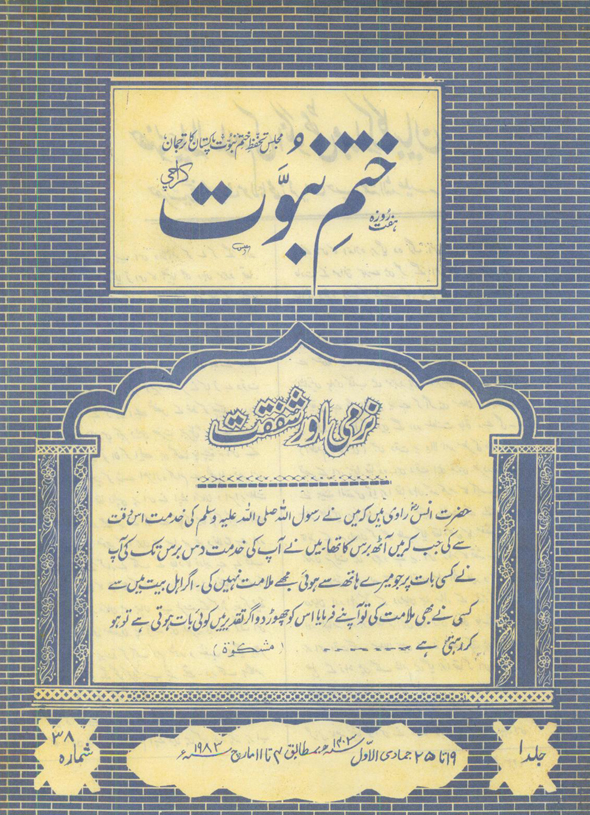 مجلس تحفظ ختم نبوت پاکستان کا ترجمان
ختمِ نبوَّت
کراچی
ہفت روزہ
نرمی اور شفقت
حضرت انسؓ راوی ہیں کہ میں نے رسول اللہ صلی اللہ علیہ وسلم کی خدمت اس وقت
سے کی جب کہ میں آٹھ برس کا تھا۔ میں نے آپ کی خدمت دس برس تک کی آپ
نے کسی بات پر جو میرے ہاتھ سے ہوئی مجھے ملامت نہیں کی۔ اگر اہل بیت میں سے
کسی نے بھی ملامت کی تو آپ نے فرمایا اس کو چھوڑ دو اگر تقدیر میں کوئی بات ہوتی ہے تو ہو
کر رہتی ہے ـ ـ ـ ـ ـ ـ ـ ( مشکوٰۃ )
جلد ۱
۱۹ تا ۲۵ جمادی الاوّل ۱۴۰۳ھ بمطابق ۴ تا ۱۱ مارچ ۱۹۸۳ء
شمارہ ۳۸